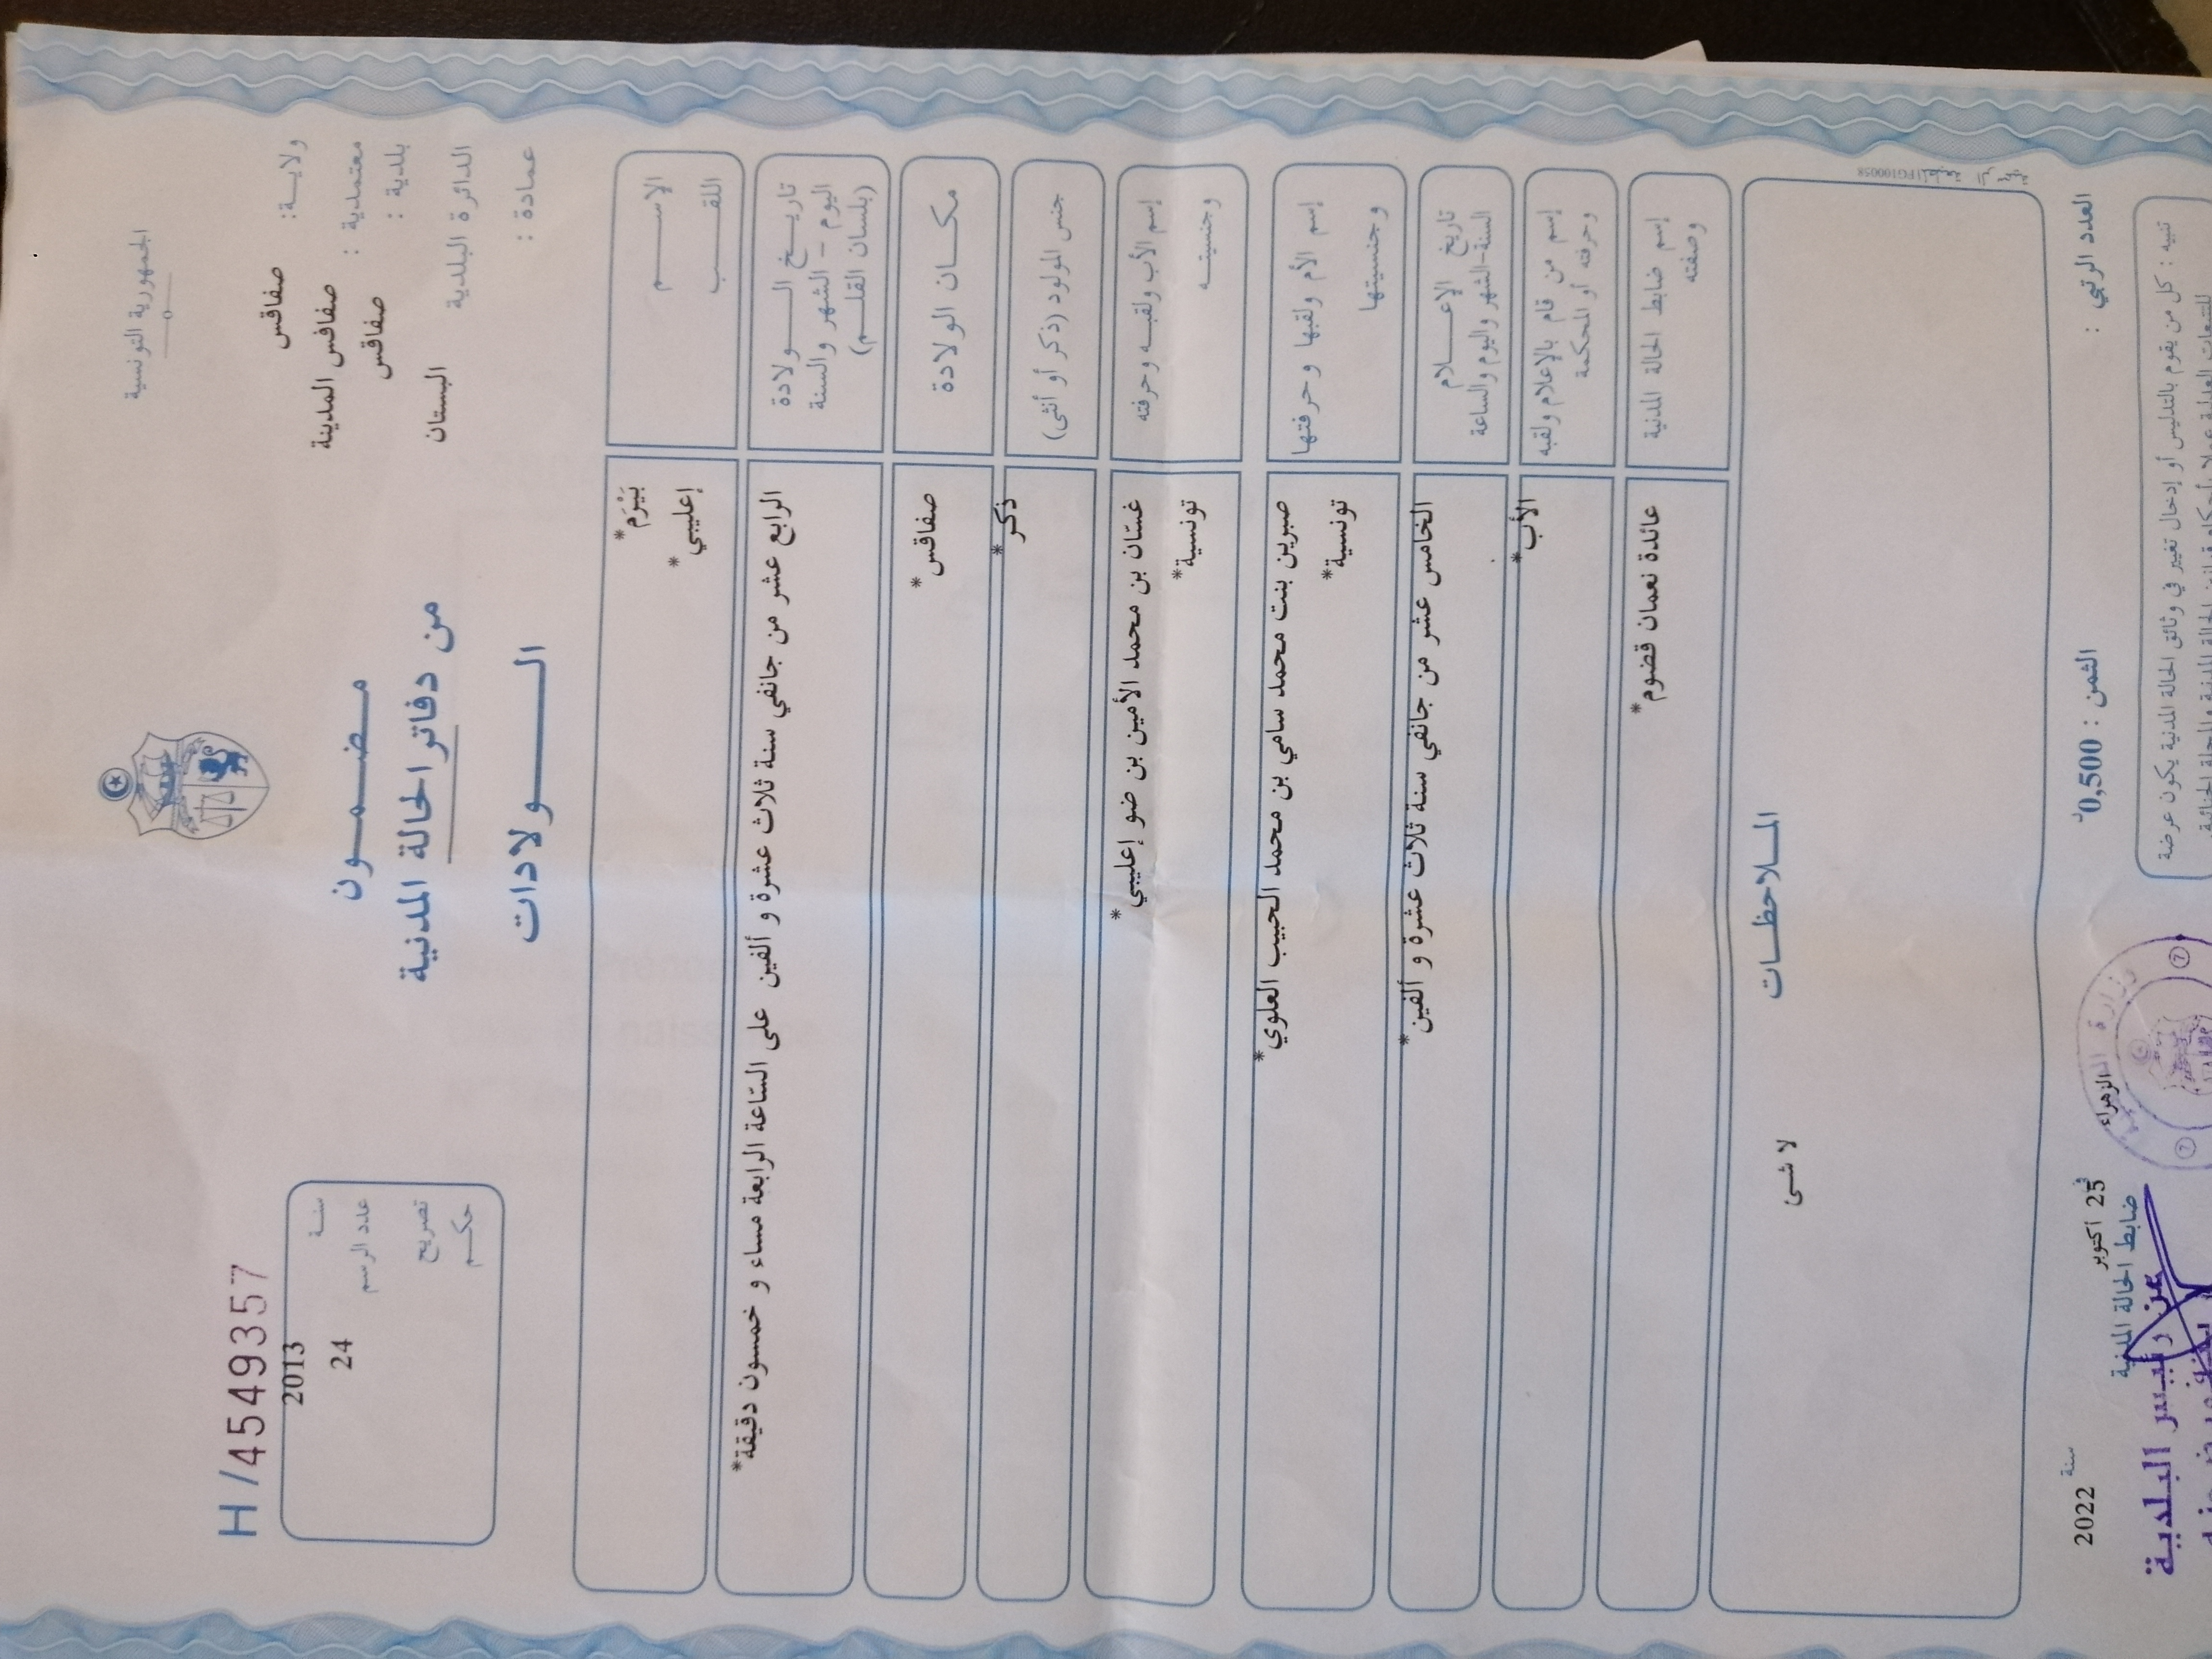 الجمهورية التونسية
ولايـــة: صفاقس
معتمدية : صفاقس المدينة
بلدية : صفاقس
الدائرة البلدية البستان
عمادة :
مضمــون
من دفاتر الحالة المدنية
الــولادات
H/4549357
سنـة 2013
عدد الرسم 24
تصريح
حكـم
الإســـم بَيْرَم*
اللقـــب إعليبي*
تاريــخ الــولادة
اليوم - الشهر والسنة
(بلسان القلــم)
الرابع عشر من جانفي سنة ثلاث عشرة و ألفين على السّاعة الرابعة مساء و خمسون دقيقة*
مكــان الولادة صفاقس*
جنس المولود (ذكر أو أنثى) ذكر*
إسم الأب ولقبــه وحرفته غسّان بن محمد الأمين بن ضو إعليبي*
وجنسيتــه تونسية*
إسم الأم ولقبها وحرفتها صبرين بنت محمد سامي بن محمد الحبيب العلوي*
وجنسيتها تونسية*
تاريخ الإعــلام
السنة-الشهر واليوم والساعة
الخامس عشر من جانفي سنة ثلاث عشرة و ألفين*
إسم من قام بالإعلام ولقبه
وحرفته أو المحكمة
الأب*
إسم ضابط الحالة المدنية
وصفته
عائدة نعمان قضوم*
الملاحظــات
لا شئ
العدد الرتبي :
الثمن : 0,500د
الزهراء في 25 أكتوبر سنة 2022
ضابط الحالة المدنية
عن رئيس البلدية
تنبيه : كل من يقوم بالتدليس أو إدخال تغيير في وثائق الحالة المدنية يكون عرضة